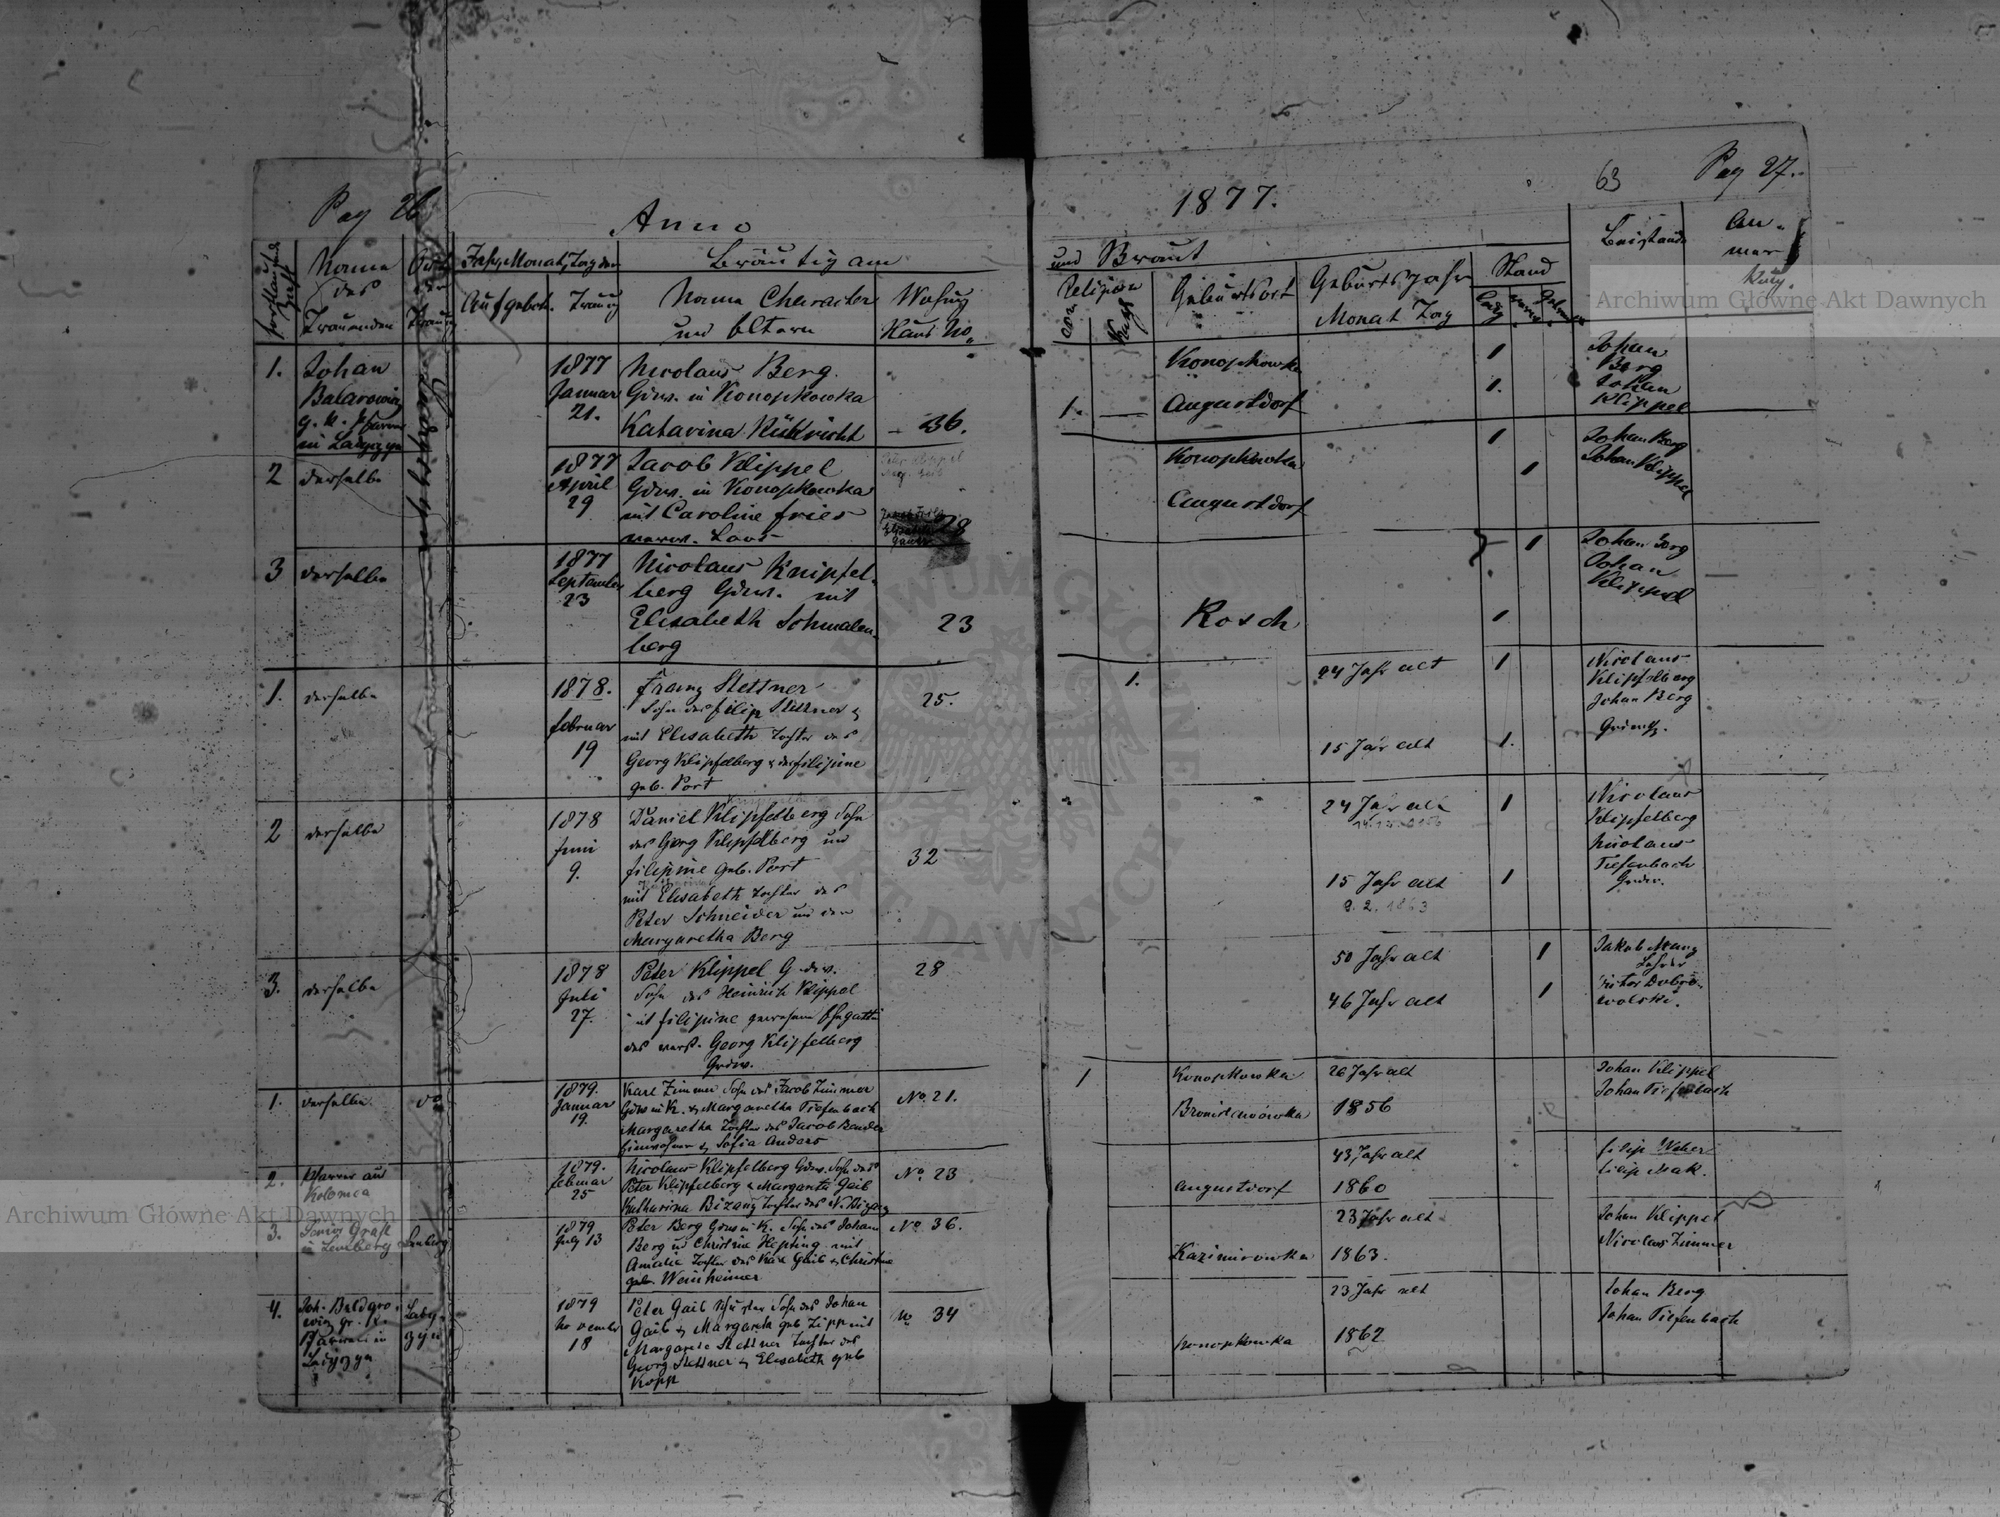 Pag 26
Anno
Name
des
Trauenden
Jahr, Monat, Tag der
Aufgebot. Trauung
Bräutigam
Name Character
und Eltern
Wohnung
Haus No.
1. Johan
g. k. Pfarrer
in
1877
Januar
21.
Nicolaus Berg
Gdw. in Konopkowka
Katarina
36.
2 derselbe
1877
April
29
Jacob Klippel
Gdw. in Konopkowka
mit Caroline Fries
verw.
28
3 derselbe
1877
September
23
Nicolaus Knipfel-
berg Gdw. mit
Elisabeth Schmalen-
berg
23
1. derselbe
1878.
Februar
19
Franz Stettner
Sohn des Filip Stettner &
mit Elisabeth Tochter des
Georg Klipfelberg & der Filipine
geb. Port
25.
2 derselbe
1878
Juni
9.
Daniel Klipfelberg Sohn
des Georg Klipfelberg und
Filipine geb. Port
mit Elisabeth Tochter des
Peter Schneider und der
Margaretha Berg
32
3. derselbe
1878
Juli
27.
Peter Klippel Gdw.
Sohn des Heinrich Klippel
mit Filipine gewesene Ehegattin
des verst. Georg Klipfelberg
Gdw.
28
1. derselbe
1879.
Januar
19.
Karl Zimmer Sohn des Jacob Zimmer
Gdw in K. & Margaretha Tiefenbach
Margaretha Tochter des Jacob Bender
Einwohner & Sofia Anders
No. 21.
2. Pfarrer aus
Kolomea
1879.
Februar
25
Nicolaus Klipfelberg Gdw. Sohn des
Peter Klipfelberg & Margareta Gaib
Katharina Bizanz Tochter des N. Bizanz
No 23
3.
in Lemberg
Lemberg
1879
July 13
Peter Berg Gdw in K. Sohn des Johann
Berg und Christine Hepting mit
Amalie Tochter des Karl Gaib & Christine
geb. Weinheimer
No 36.
4. Joh.
gr. k.
Pfarrer in
1879
November
18
Peter Gaib Sohn des Johan
Gaib & Margareta geb Zipp mit
Margarete Stettner Tochter des
Georg Stettner & Elisabeth geb
Kopp
No 34
1877.
63
Pag 27.
und Braut
Religion
Geburtsort
Geburts Jahr
Monat Tag
Stand
Beistände
An-
mer
kung.
Konopkowka
Augustdorf
1
1.
Johan
Berg
Johan
Klippel
Konopkowka
Augustdorf
1
1
Johan Berg
Johan Klippel
Rosch
1
1
Johan Berg
Johan
Klippel
1.
24 Jahr alt
15 Jahr alt
1
1.
Nicolaus
Klipfelberg
Johan Berg
24 Jahr alt
15 Jahr alt
9. 2. 1863
1
1
Nicolaus
Klipfelberg
Nicolaus
Tiefenbach
50 Jahr alt
46 Jahr alt
1
1
Jakob Manz
Lehrer
1
Konopkowka
Bronislawowka
26 Jahr alt
1856
Johan Klippel
Johan Tiefenbach
Augustdorf
43 Jahr alt
1860
Filip Weber
Filip Mak.
Kazimirowka
23 Jahr alt
1863.
Johan Klippel
Nicolaus Zimmer
Konopkowka
23 Jahr alt
1862
Johan Berg
Johan Tiefenbach
Archiwum Główne Akt Dawnych
Archiwum Główne Akt Dawnych